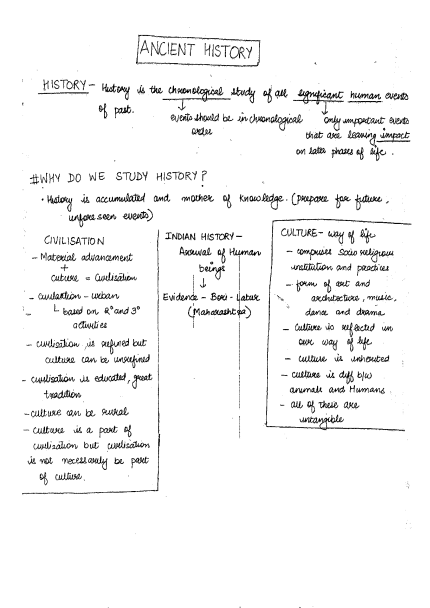 ANCIENT HISTORY
HISTORY - History is the chronological study of all significant human events
of past.
↓ events should be in chronological order
↓ only important events
that are leaving impact
on later phases of life.
#WHY DO WE STUDY HISTORY?
• History is accumulated and mother of knowledge. (prepare for future,
unforeseen events)
CIVILISATION
- Material advancement
+
culture = Civilisation
- civilisation - urban
↳ based on 2° and 3°
activities
- civilisation is refined but
culture can be unrefined
- civilisation is educated, great
tradition
- culture can be rural
- culture is a part of
civilisation but civilisation
is not necessarily be part
of culture.
INDIAN HISTORY -
Arrival of Human
beings
↓
Evidence - Bori - Latur
(Maharashtra)
CULTURE - way of life
- comprises socio religious
institution and practices
- form of art and
architecture, music,
dance and drama
- culture is reflected in
our way of life
- culture is inherited
- culture is diff b/w
animals and Humans.
- all of these are
intangible